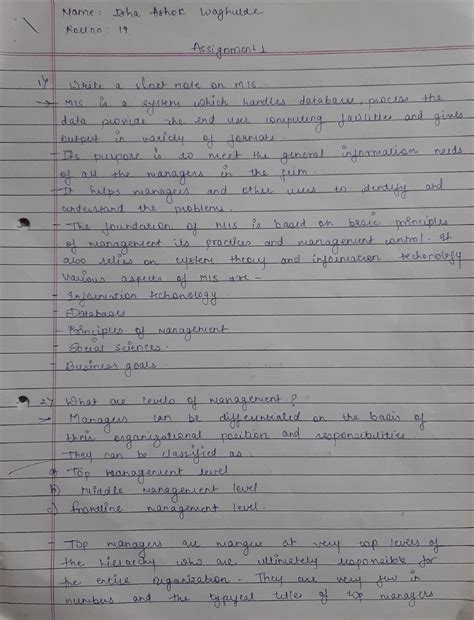 Name: Isha Ashok Waghulde
Roll no: 19
Assignment 1
1) Write a short note on MIS.
→ MIS is a system which handles databases, process the
data provide the end user computing facilities and gives
output in variety of formats.
- Its purpose is do meet the general information needs
of all the managers in the firm.
- It helps managers and other users to identify and
understand the problems.
- The foundation of MIS is based on basic principles
of management its practices and management control. It
also relies on system theory and information techonology
Various aspects of MIS are :-
- Information techonology.
- Databases
- Principles of management
- Social Sciences.
- Business goals.
2) What are levels of management?
→ Managers can be differentiated on the basis of
their organizational position and responsibilities
They can be classified as:
a) Top management level
b) Middle management level
c) frontline management level.
- Top managers are mangers at very top levels of
the hierarchy who are ultimately responsible for
the entire organization. They are very few in
numbers and the typical title of top managers